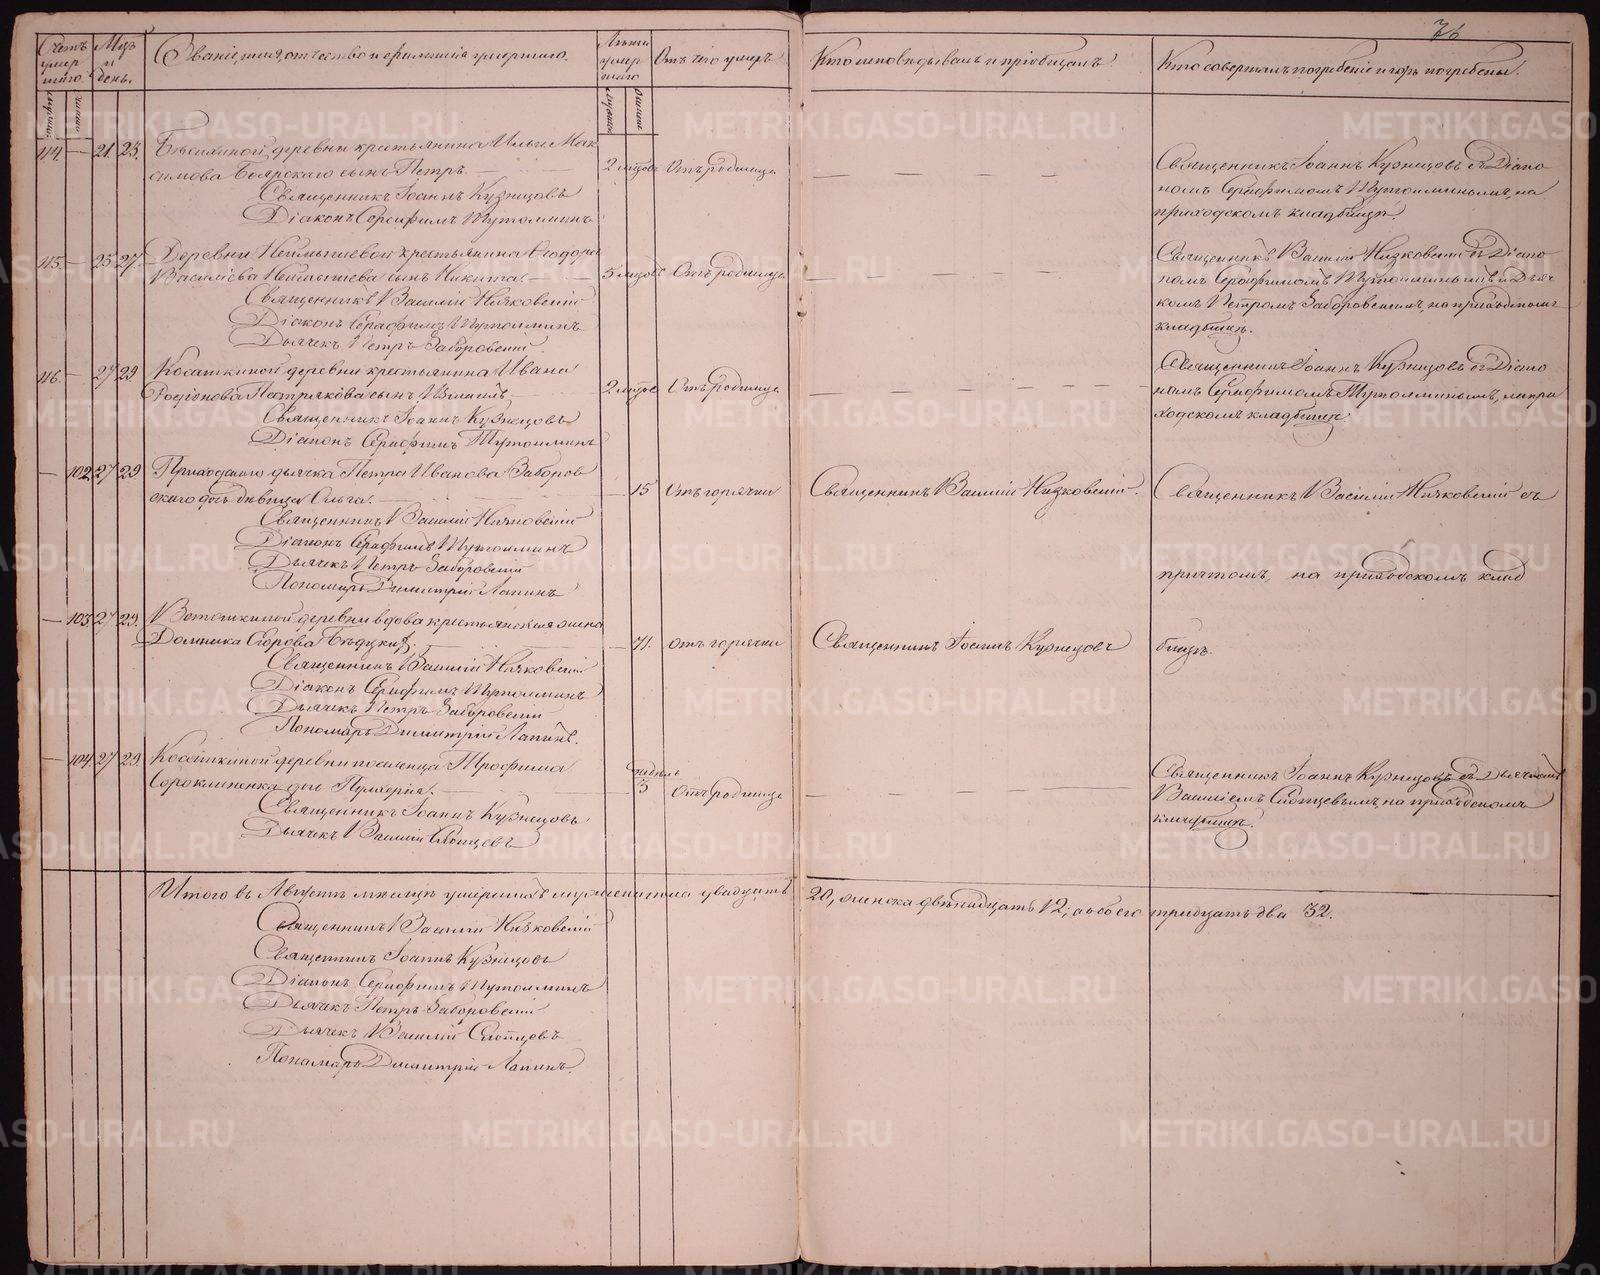 76
Счетъ умершаго.
Мцъ и день.
Званіе, имя, отчество и фамилія умершаго.
Лѣта умершаго
Отъ чего умеръ
Кто исповѣдывалъ и пріобщалъ.
Кто совершалъ погребеніе и гдѣ погребены.
114. — 21. 23.
деревни крестьянина Ильи Мак
симова Боярскаго сынъ Петръ.
Священникъ Іоаннъ Кузнецовъ
Діаконъ Серафимъ Тутолминъ
2 мѣсяц. Отъ родимца
Священникъ Іоаннъ Кузнецовъ съ Діако
номъ Серафимомъ Тутолминымъ, на
приходскомъ кладбищѣ.
115. — 25 27.
Деревни крестьянина Ѳеодора
Васильева сынъ Никита.
Священникъ Василій Низковскій
Діаконъ Серафимъ Тутолминъ
Дьячекъ Петръ Заборовскій.
5 мѣсяц. Отъ родимца
Священникъ Василій Низковскій съ Діако
номъ Серафимомъ Тутолминымъ и Дьяч
комъ Петромъ Заборовскимъ, на приходскомъ
кладбищѣ.
116. — 27 29
Косаткиной деревни крестьянина Ивана
Родіонова Петрякова сынъ
Священникъ Іоаннъ Кузнецовъ
Діаконъ Серафимъ Тутолминъ
2 мѣсяц. Отъ родимца
Священникъ Іоаннъ Кузнецовъ съ Діако
номъ Серафимомъ Тутолминымъ, на при
ходскомъ кладбищѣ.
— 102. 27 29
Приходскаго дьячка Петра Иванова Заборов
скаго дочь дѣвица Ольга.
Священникъ Василій Низковскій
Діаконъ Серафимъ Тутолминъ
Дьячекъ Петръ Заборовскій
Пономарь Димитрій Лапинъ
15 Отъ горячки
Священникъ Василій Низковскій.
Священникъ Василій Низковскій съ
причтомъ, на приходскомъ клад
бищѣ.
— 103. 27 29.
деревни вдова крестьянская жена
Домника Егорова
Священникъ Василій Низковскій
Діаконъ Серафимъ Тутолминъ
Дьячекъ Петръ Заборовскій
Пономарь Димитрій Лапинъ.
71. Отъ горячки
Священникъ Іоаннъ Кузнецовъ
— 104. 27 29.
Косаткиной деревни поселенца Трофима
Сороклетика дочь Пульхерія.
Священникъ Іоаннъ Кузнецовъ
Дьячекъ Василій Слотцевъ
недѣль 3 Отъ родимца
Священникъ Іоаннъ Кузнецовъ съ Дьячкомъ
Василіемъ Слотцевымъ, на приходскомъ
кладбищѣ.
Итого въ Августѣ мѣсяцѣ умершихъ мужеска пола двадцать 20, женска двѣнадцать 12; а обоего тридцать два 32.
Священникъ Василій Низковскій
Священникъ Іоаннъ Кузнецовъ
Діаконъ Серафимъ Тутолминъ
Дьячекъ Петръ Заборовскій
Дьячекъ Василій Слотцевъ
Пономарь Димитрій Лапинъ.
METRIKI.GASO-URAL.RU